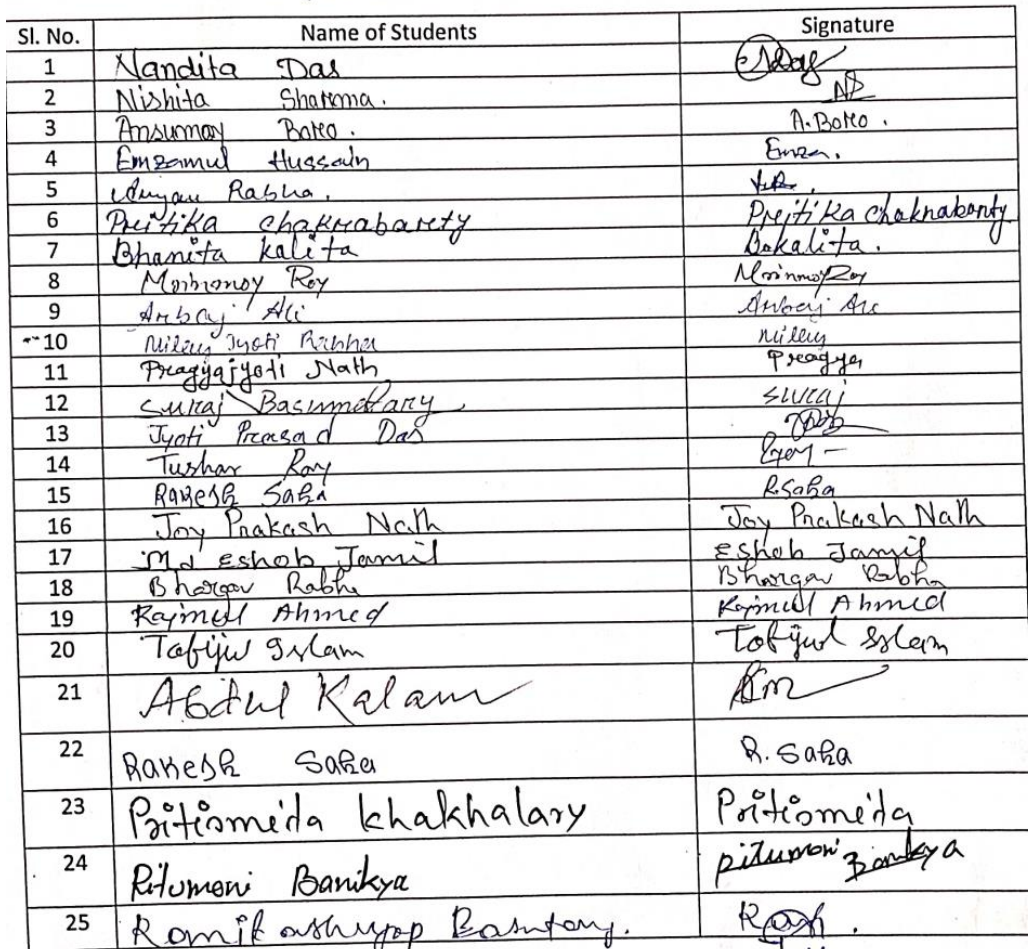 Sl. No. Name of Students Signature
1 Nandita Das
2 Nishita Sharma.
3 Ansumoy Boro. A. Boro.
4 Emzamul Hussain Emza.
5 Rabha.
6 Pritika Chakrabarty Pritika Chakraborty
7 Bhanita Kalita Bokalita.
8 Roy Roy
9 Arbaj Ali Arbaj Ali
10 Jyoti Rabha
11 Pragyajyoti Nath Pragya
12 Suraj Basumatary Suraj
13 Jyoti Prasad Das
14 Tushar Roy
15 Rakesh Saha R. Saha
16 Joy Prakash Nath Joy Prakash Nath
17 Md Eshob Jamil Eshob Jamil
18 Bhargav Rabha Bhargav Rabha
19 Rajmul Ahmed Rajmul Ahmed
20 Tofijul Islam Tofijul Islam
21 Abdul Kalam
22 Rakesh Saha R. Saha
23 Pritismita Khakhalary Pritismita
24 Ritumoni Banikya Ritumoni Banikya
25